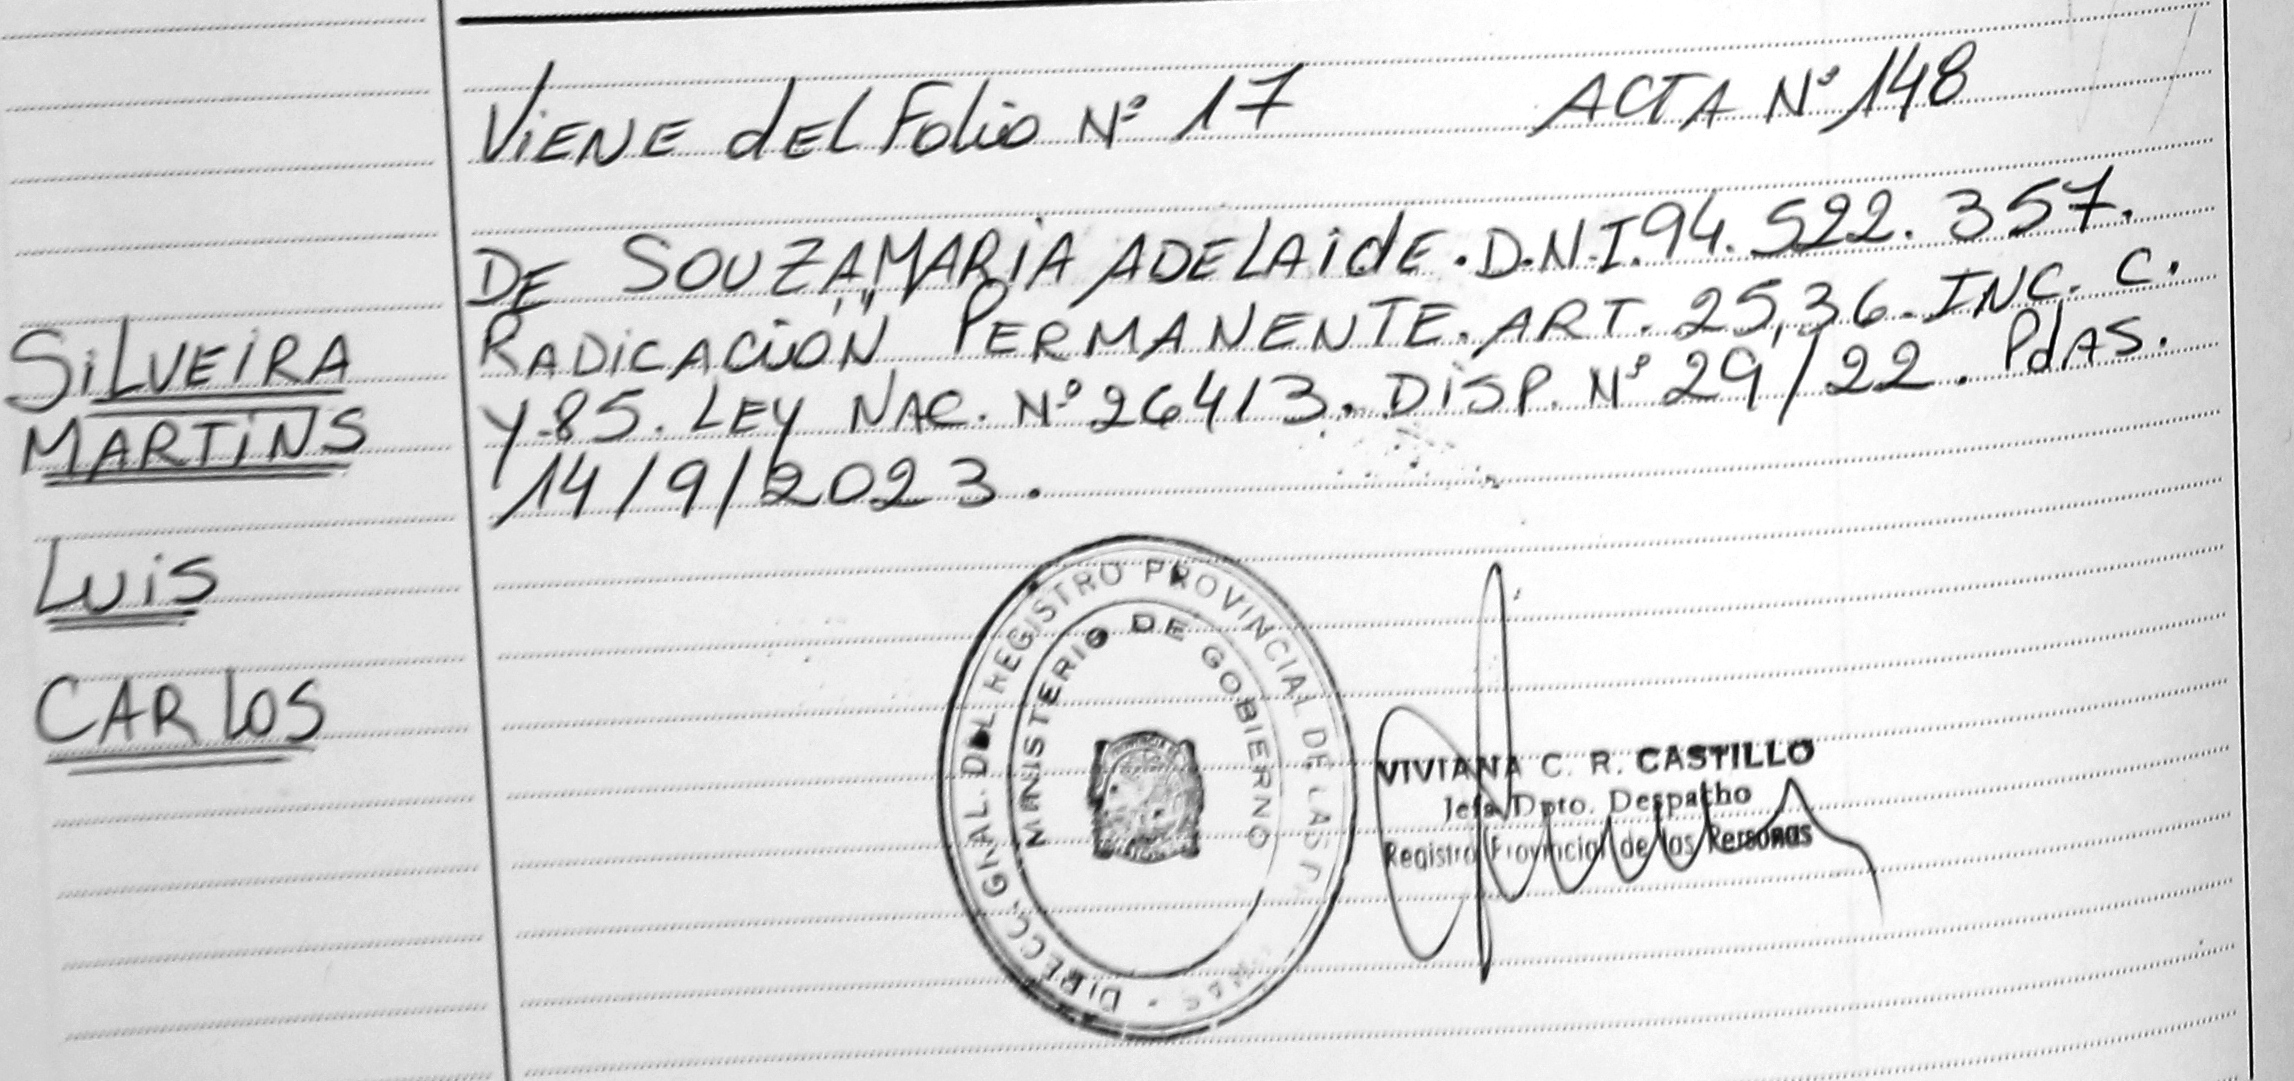 Viene del Folio Nº 17 ACTA Nº 148
DE SOUZA, MARIA ADELAIDE. D.N.I. 94.522.357.
RADICACION "PERMANENTE. ART. 25,36. INC. C.
Y 85. LEY NAC. Nº 26413. DISP. Nº 29/22. PdAS.
14/9/2023.
SILVEIRA
MARTINS
LUIS
CARLOS
DIRECC. GRAL. DEL REGISTRO PROVINCIAL DE LAS
MINISTERIO DE GOBIERNO
VIVIANA C. R. CASTILLO
Jefa Dpto. Despacho
Registro Provincial de las Personas